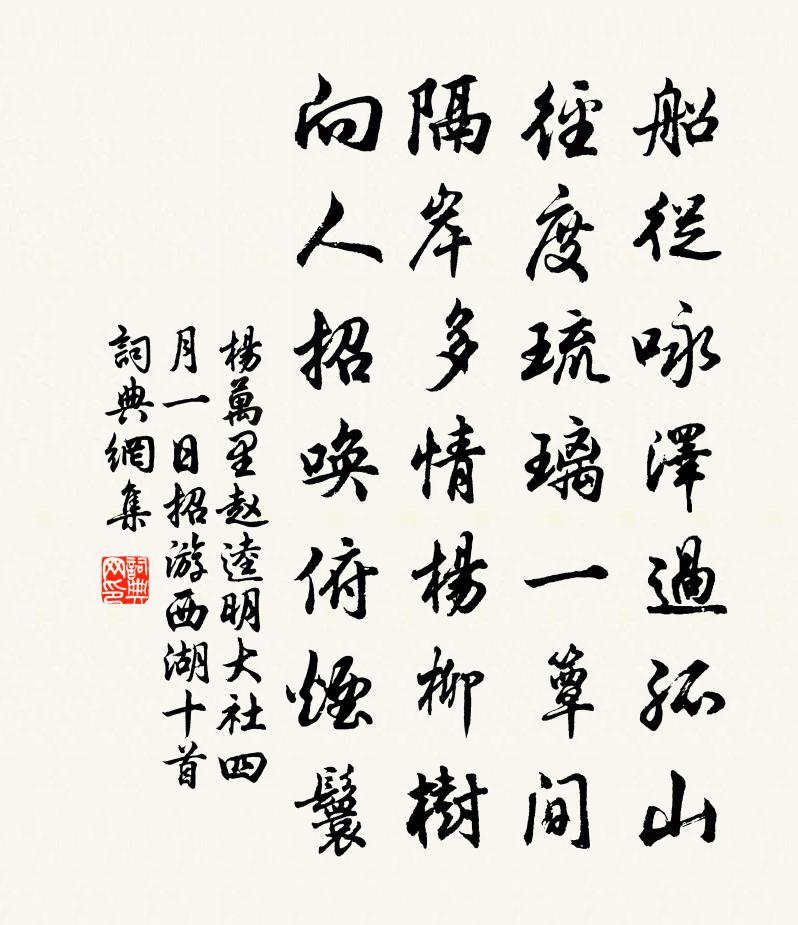 船從咏澤過孤山
徑度琉璃一簟間
隔岸多情楊柳樹
向人招喚俯煙鬟
楊萬里赵逵明大社四
月一日招游西湖十首
詞典網集
詞典
网印